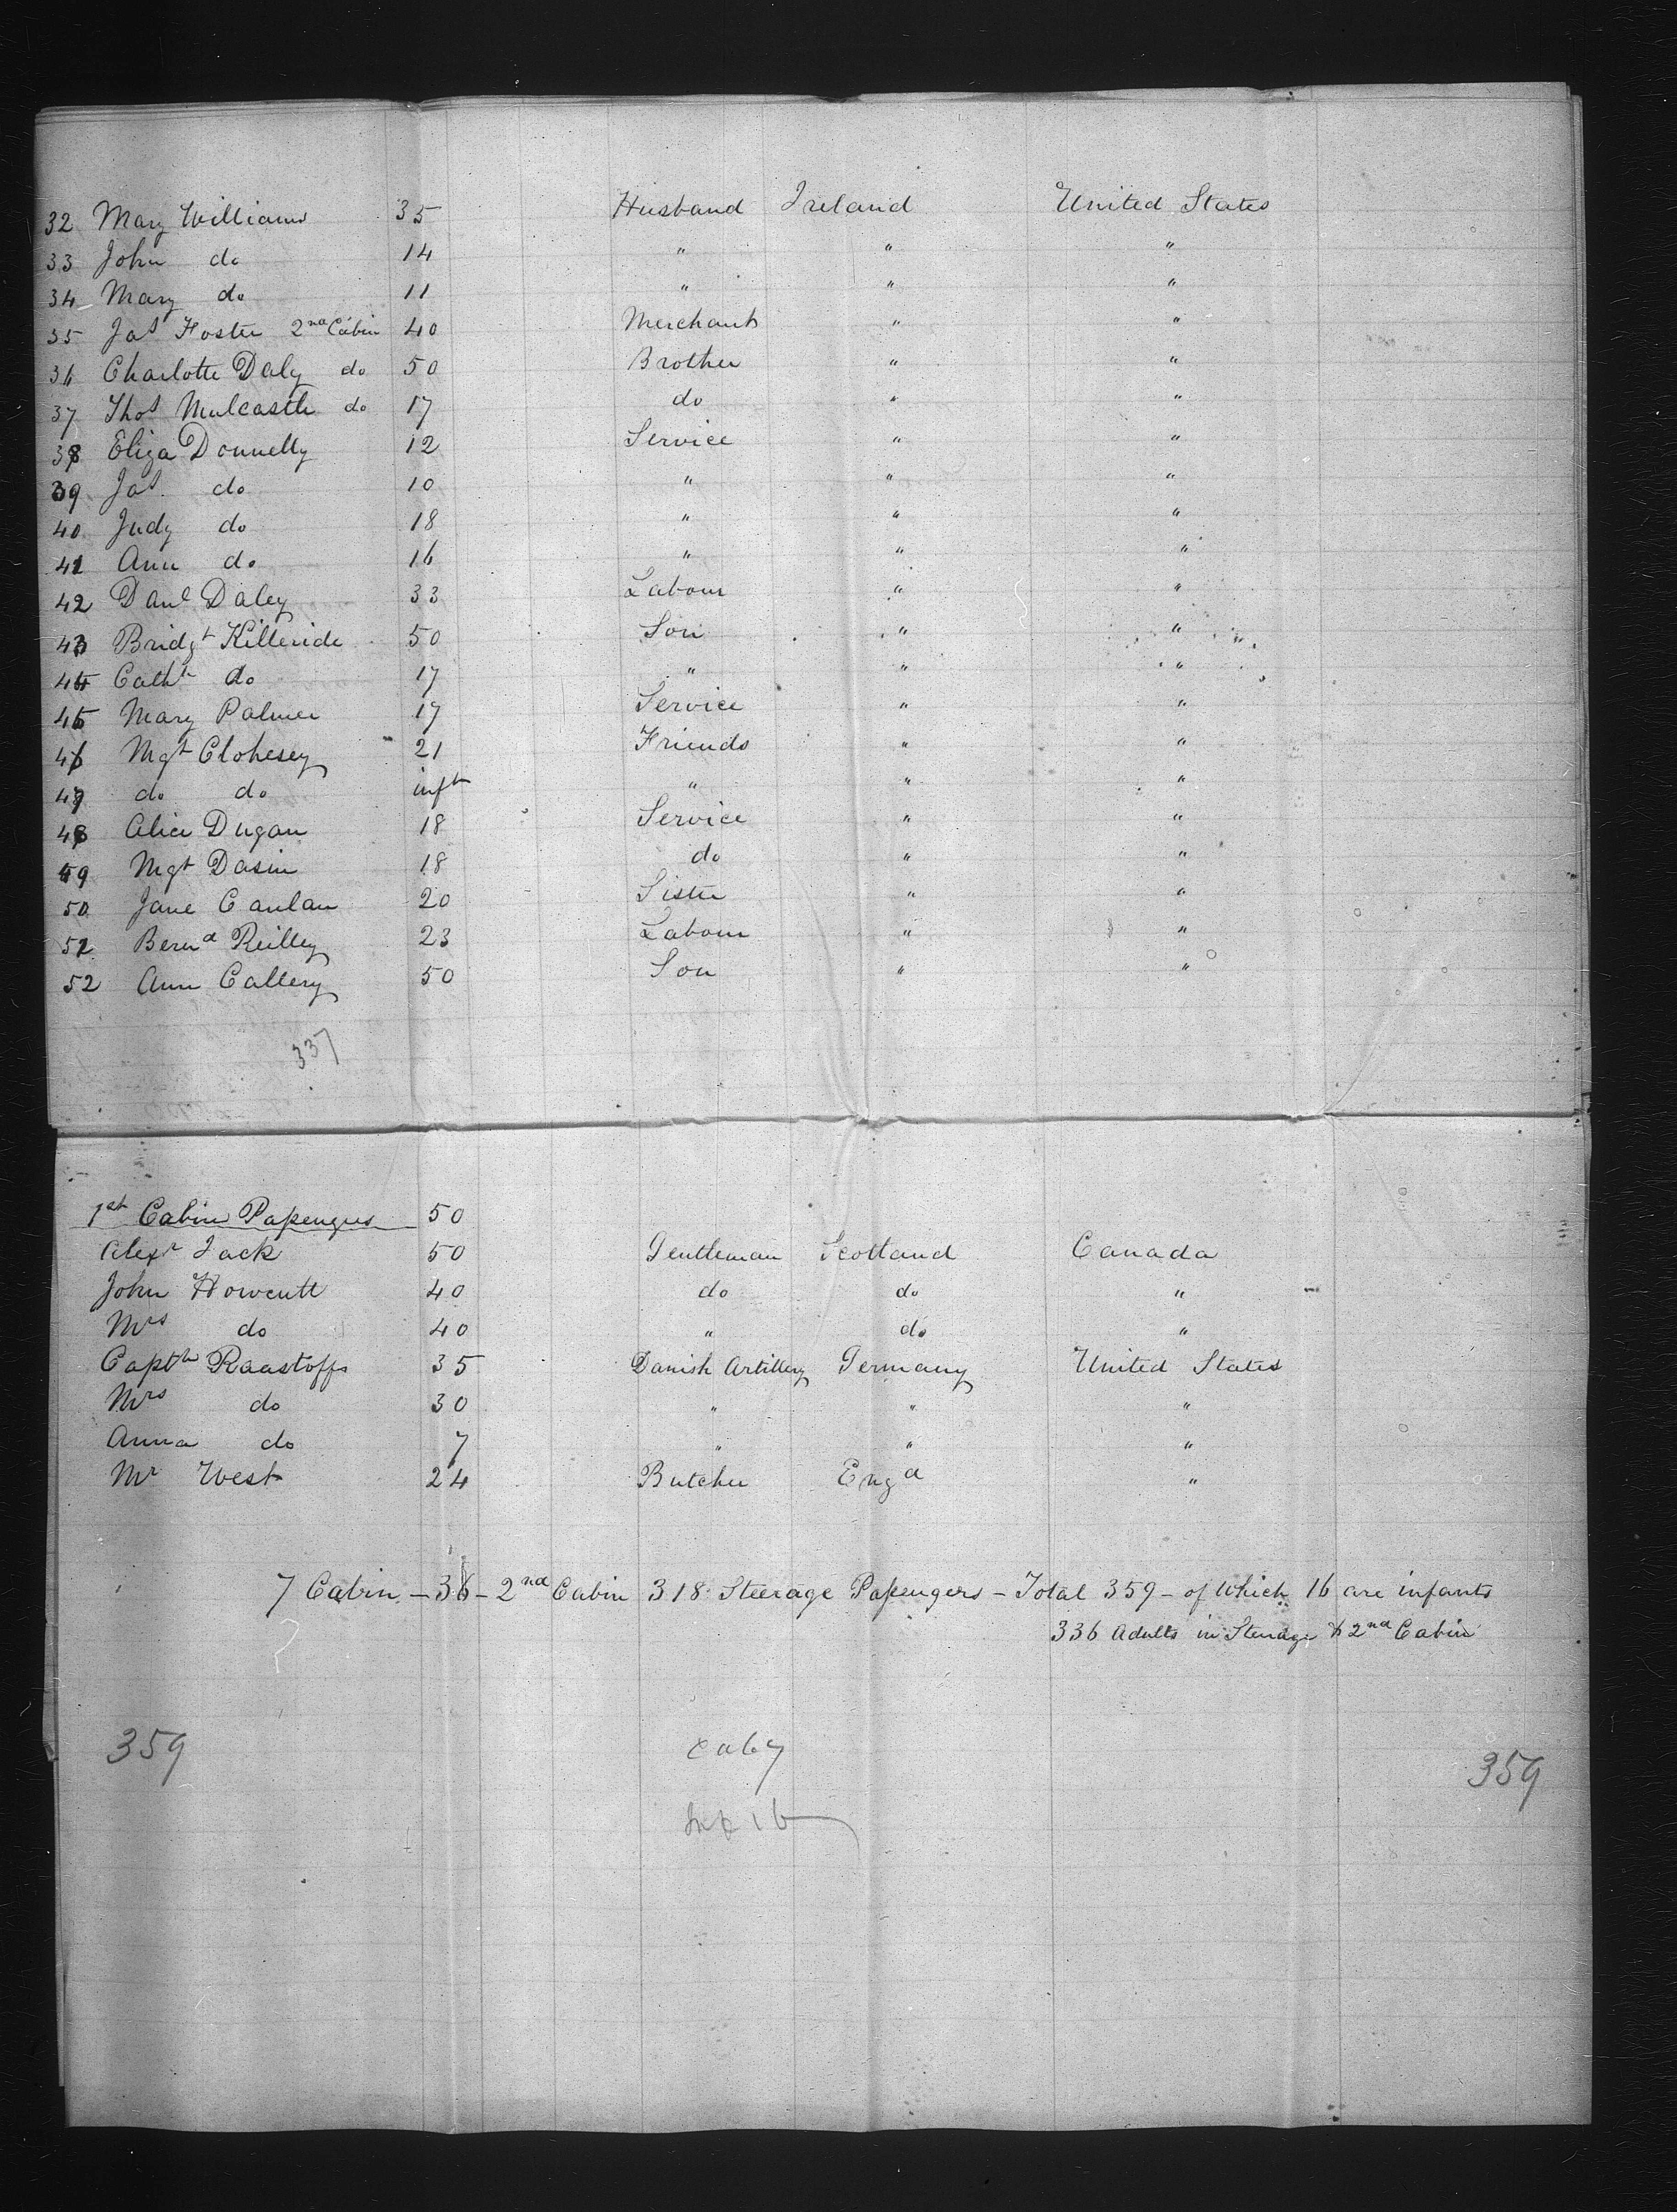 32 Mary Williams 35 Husband Ireland United States
33 John do 14 " " "
34 Mary do 11 " " "
35 Jas Foster 2nd Cabin 40 Merchant " "
36 Charlotte Daly do 50 Brother " "
37 Thos Mulcastle do 17 do " "
38 Eliza Donnelly 12 Service " "
39 Jas do 10 " " "
40 Judy do 18 " " "
41 Ann do 16 " " "
42 Danl Daley 33 Labour " "
43 Bridgt Killeride 50 Son " "
44 Catht do 17 " " "
45 Mary Palmer 17 Service " "
46 Mgt Clohesey 21 Friends " "
47 do do inft " " "
48 Alice Dugan 18 Service " "
49 Mgt Dasin 18 do " "
50 Jane Canlan 20 Sister " "
51 Bernd Reilley 23 Labour " "
52 Ann Callery 50 Son " "
337
1st Cabin Passengers 50
Alexr Jack 50 Gentleman Scotland Canada
John Howcutt 40 do do "
Mrs do 40 " do "
Captn Raastoff 35 Danish Artillery Germany United States
Mrs do 30 " " "
Anna do 7 " " "
Mr West 24 Butcher Engd "
7 Cabin - 36 - 2nd Cabin 318 Steerage Passengers - Total 359 - of which 16 are infants
336 Adults in Steerage & 2nd Cabin
359 359